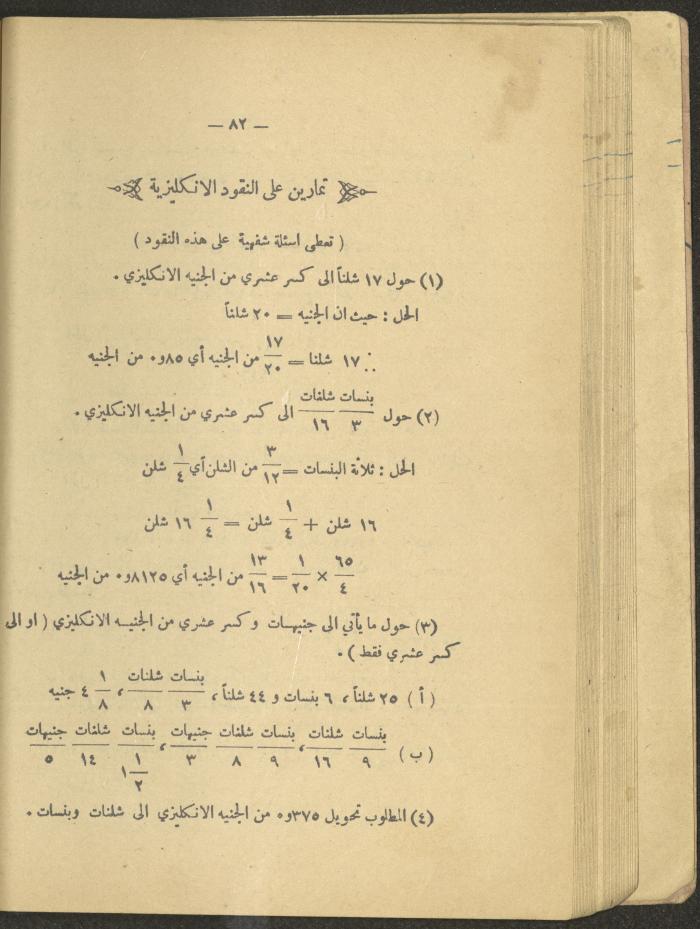 — ٨٢ —
تمارين على النقود الانكليزية
( تعطى اسئلة شفهية على هذه النقود )
(١) حول ١٧ شلناً الى كسر عشري من الجنيه الانكليزي .
الحل : حيث ان الجنيه = ٢٠ شلناً
∴ ١٧ شلنا = ١٧/٢٠ من الجنيه أي ٨٥و٠ من الجنيه
(٢) حول بنسات ٣ شلنات ١٦ الى كسر عشري من الجنيه الانكليزي .
الحل : ثلاثة البنسات = ٣/١٢ من الشلن أي ١/٤ شلن
١٦ شلن + ١/٤ شلن = ١/٤ ١٦ شلن
٦٥/٤ × ١/٢٠ = ١٣/١٦ من الجنيه أي ٨١٢٥و٠ من الجنيه
(٣) حول ما يأتي الى جنيهات وكسر عشري من الجنيه الانكليزي ( او الى
كسر عشري فقط ) .
( أ ) ٢٥ شلناً ، ٦ بنسات و ٤٤ شلناً ، بنسات ٣ شلنات ٨ ، ١/٨ ٤ جنيه
( ب ) بنسات ٩ شلنات ١٦ ، بنسات ٩ شلنات ٨ جنيهات ٣ ، بنسات ١/٢ ١ شلنات ١٤ جنيهات ٥
(٤) المطلوب تحويل ٣٧٥و٠ من الجنيه الانكليزي الى شلنات وبنسات .